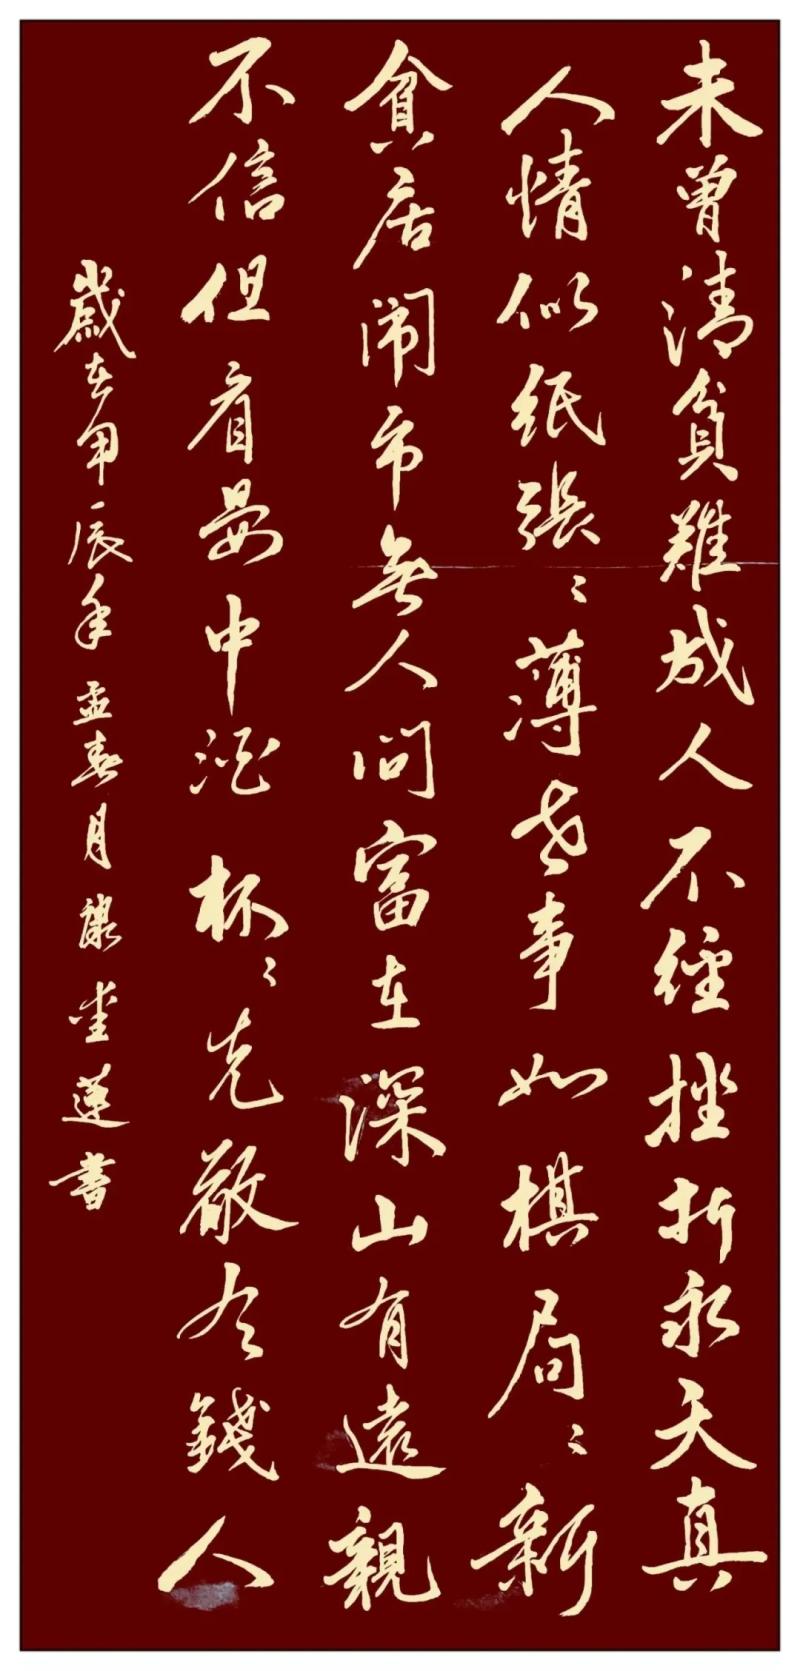 未曾清貧難成人不經挫折永天真
人情似紙張〻薄世事如棋局〻新
貧居闹市無人问富在深山有遠親
不信但看晏中酒杯〻先敬有錢人
歲在甲辰年孟春月蓮書